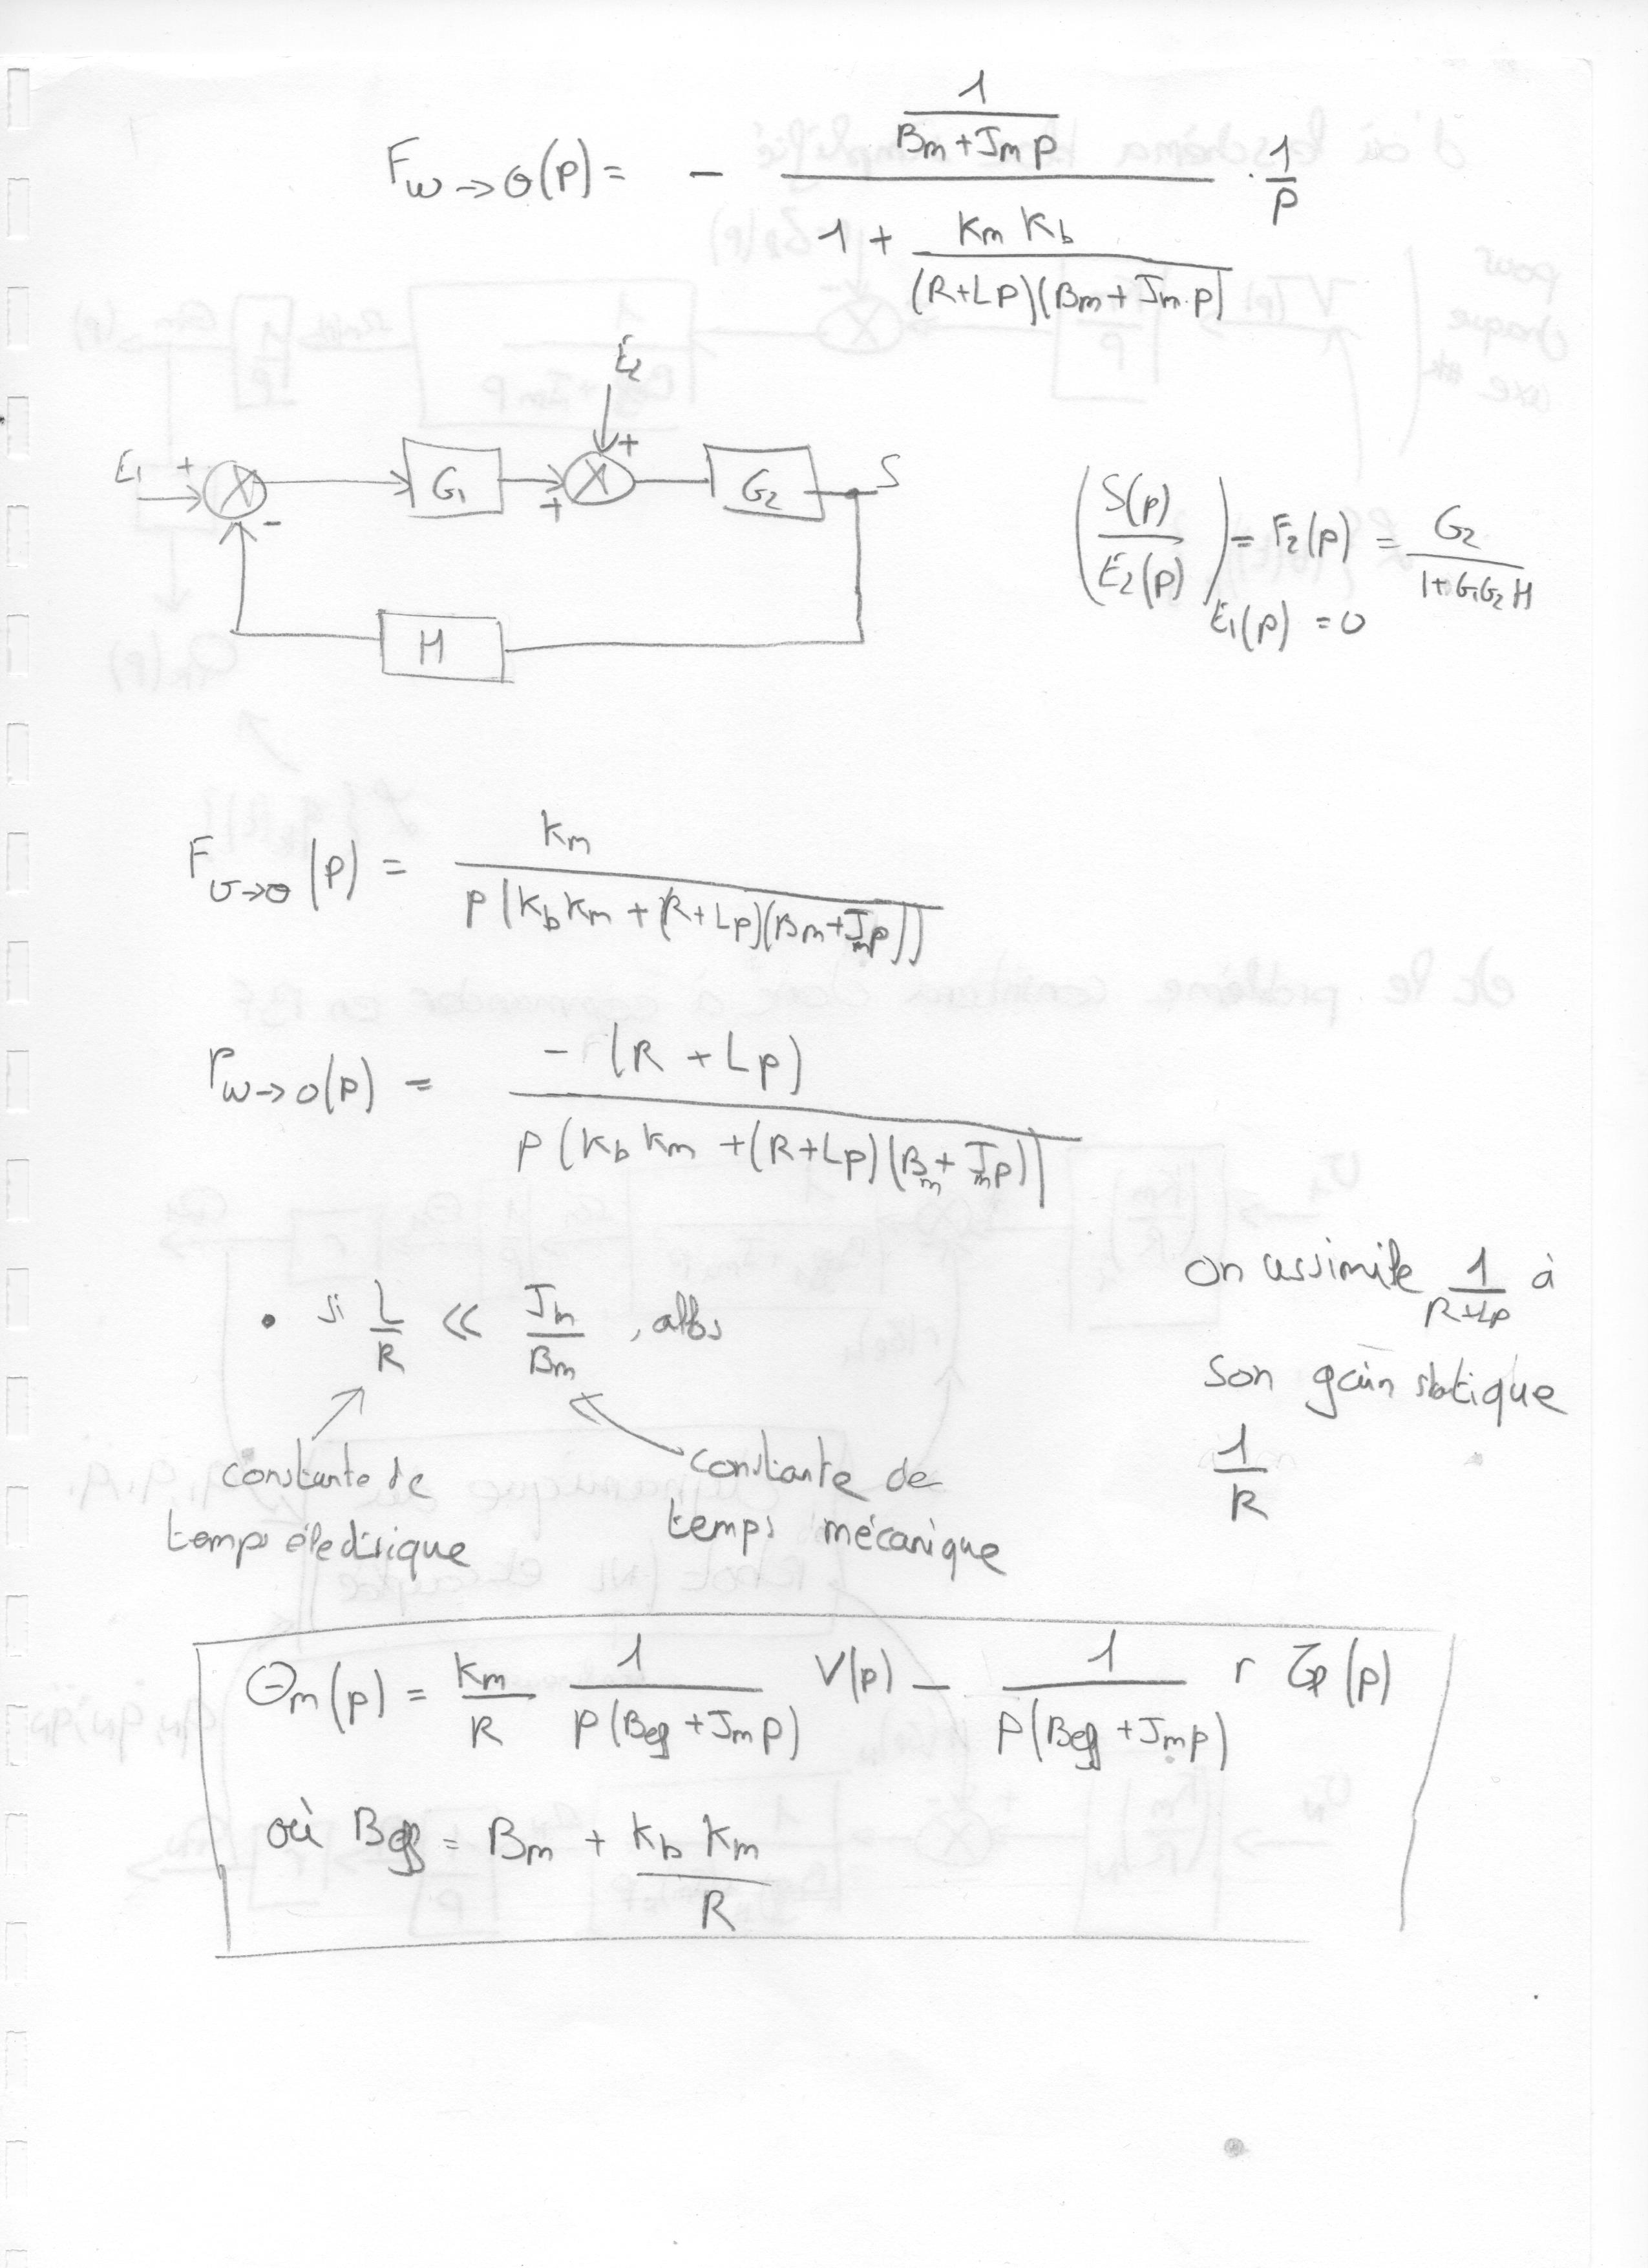 F_{w→θ}(p) = - \frac{\frac{1}{B_m + J_m p}}{1 + \frac{K_m K_b}{(R+Lp)(B_m + J_m p)}} · \frac{1}{p}
E_2
E_1 + - G_1 + + G_2 S
H
(\frac{S(p)}{E_2(p)})_{E_1(p) = 0} = F_2(p) = \frac{G_2}{1 + G_1 G_2 H}
F_{v→θ}(p) = \frac{K_m}{p(K_b K_m + (R+Lp)(B_m + J_m p))}
F_{w→θ}(p) = \frac{-(R + Lp)}{p(K_b K_m + (R+Lp)(B_m + J_m p))}
• si \frac{L}{R} << \frac{J_m}{B_m}, alors
constante de
temps électrique
constante de
temps mécanique
on assimile \frac{1}{R+Lp} à
son gain statique
\frac{1}{R}
Θ_m(p) = \frac{K_m}{R} \frac{1}{p(B_{eff} + J_m p)} V(p) - \frac{1}{p(B_{eff} + J_m p)} r τ_p(p)
où B_{eff} = B_m + \frac{K_b K_m}{R}